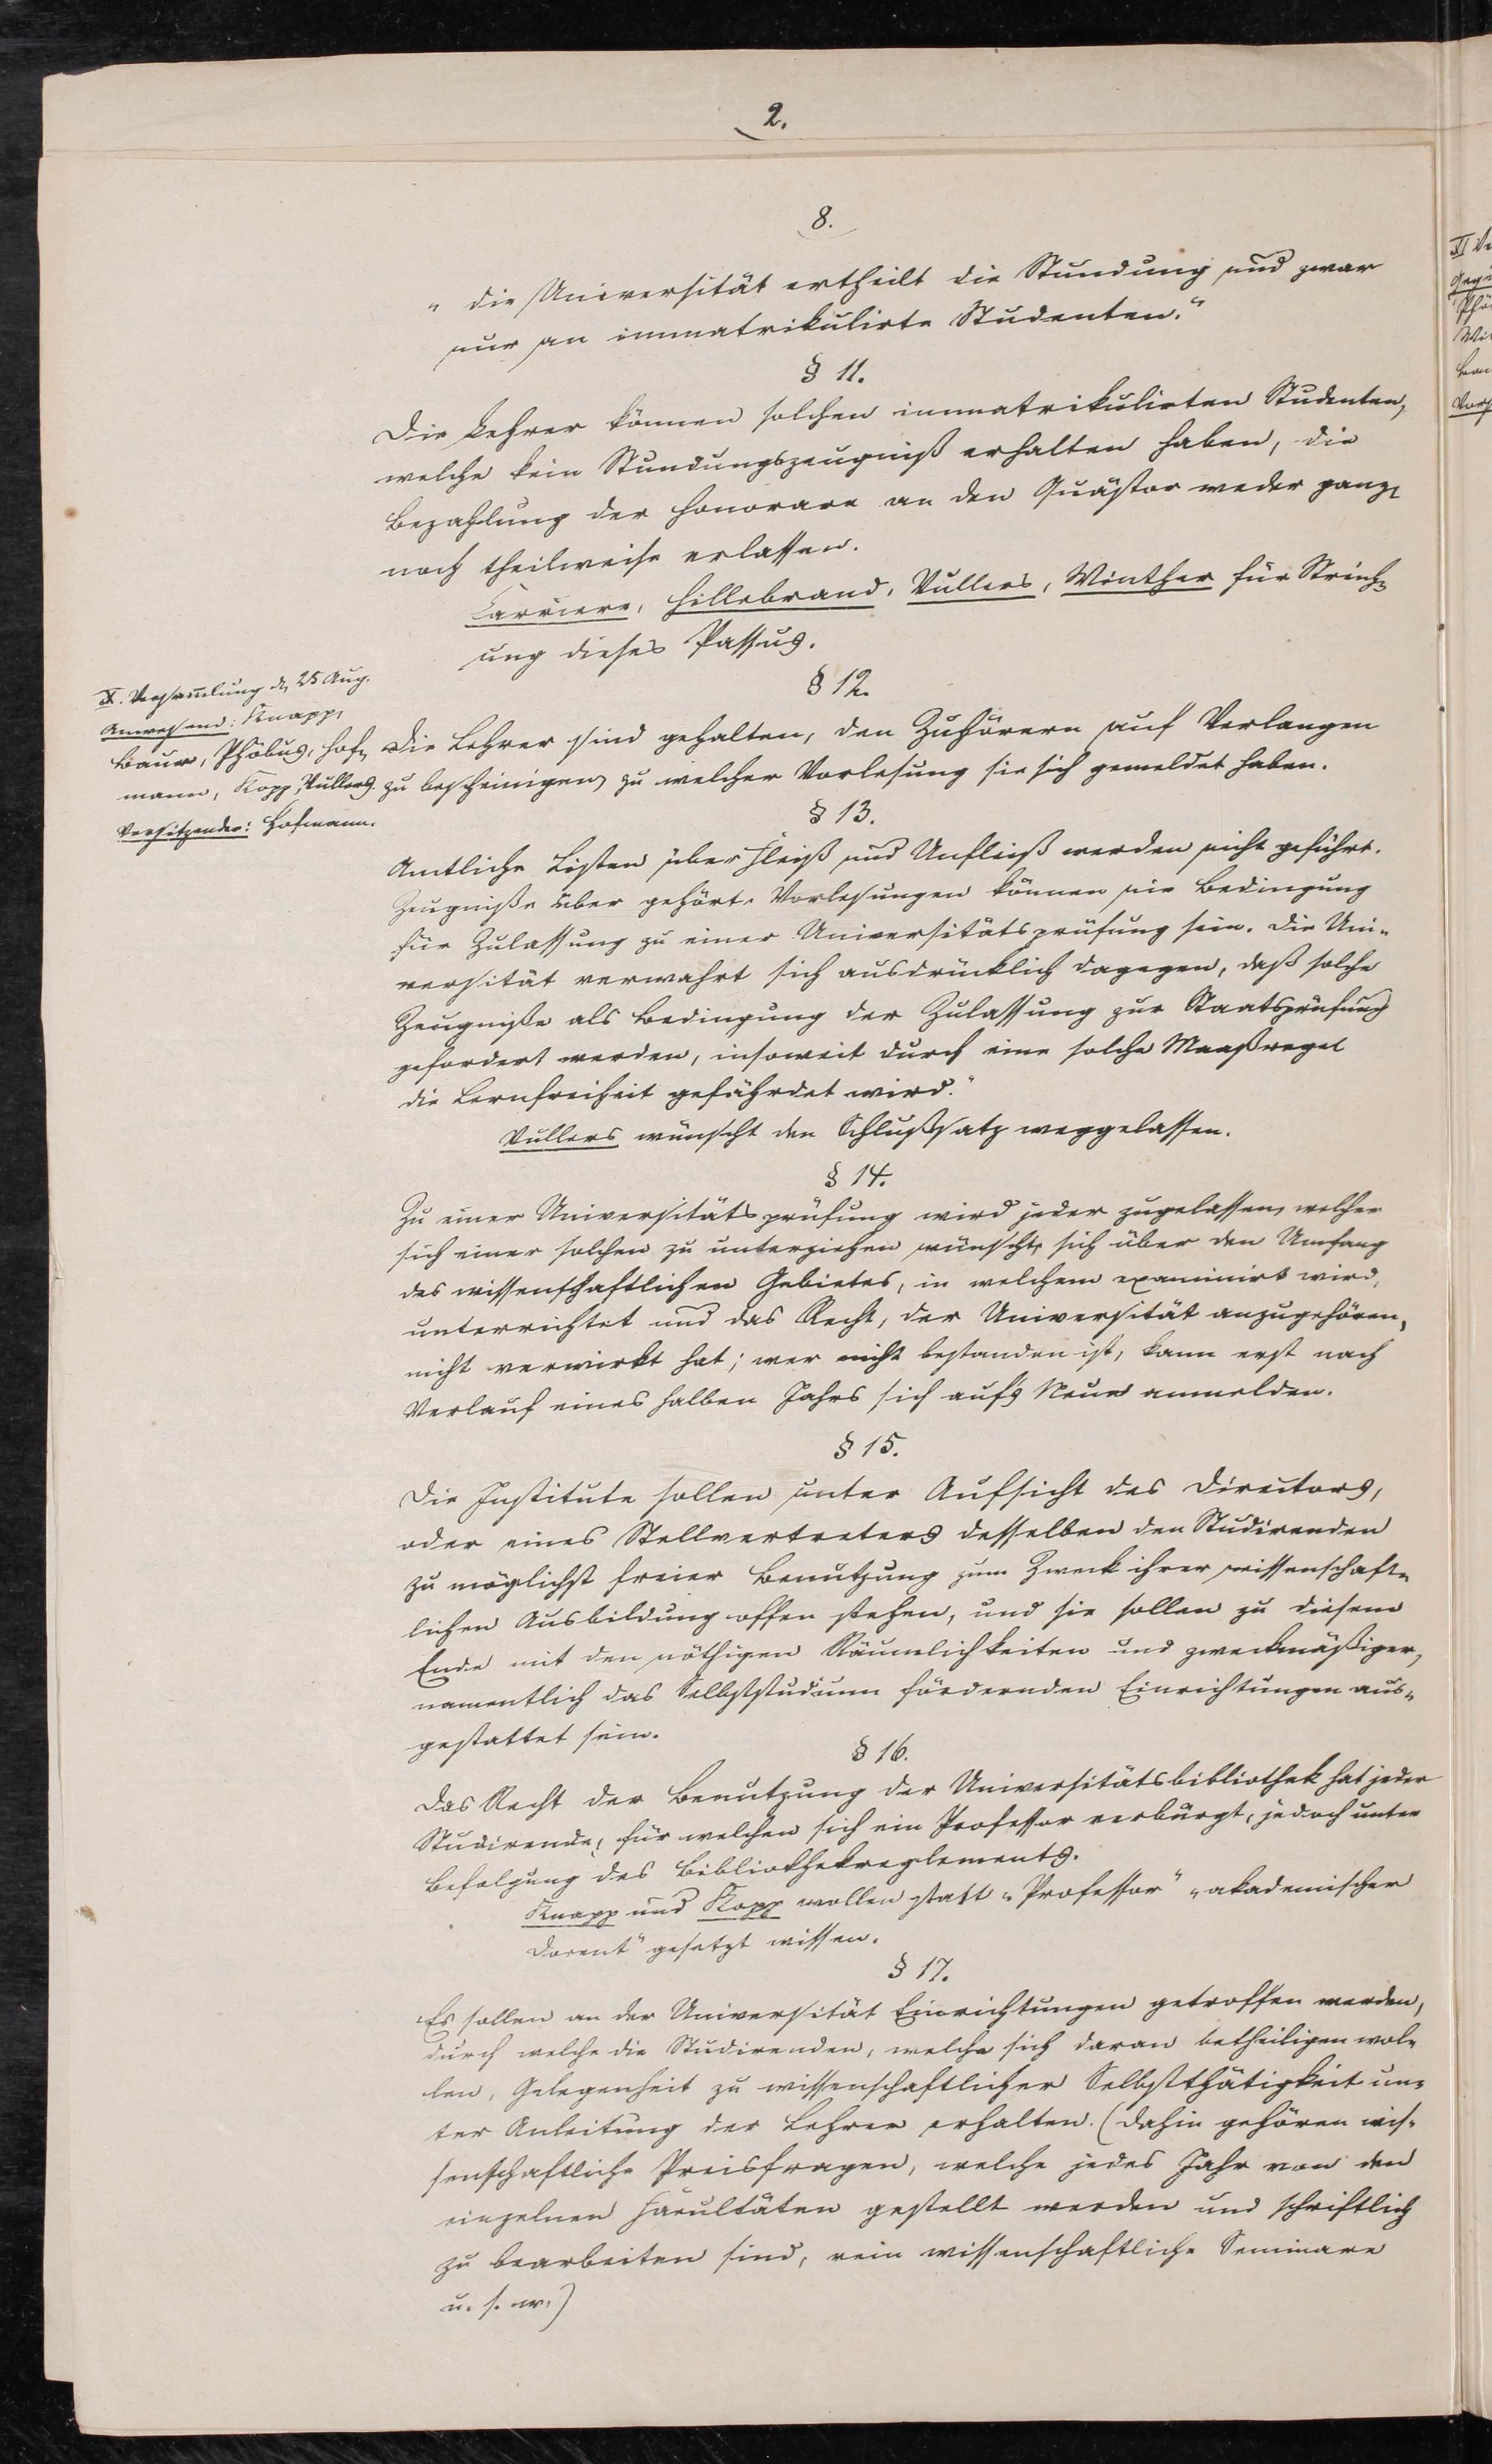 2.
8.
„die Universität ertheilt die Stundung und zwar
nur an immatrikulirte Studenten.“
§ 11.
Die Lehrer können solchen immatrikulirten Studenten,
welche kein Stundungszeugniß erhalten haben, die
Bezahlung der Honorare an den Quästor weder ganz,
noch theilweise erlassen.
Carriere, Hillebrand, Vullers, Winther für Streich-
ung dieses Passus.
§ 12.
X. Versammlung d. 25 Aug.
Anwesend: Knapp,
Baur, Phöbus, Hof-
mann, Kopp, Vullers.
Vorsitzender: Hofmann.
Die Lehrer sind gehalten, den Zuhörern auf Verlangen
zu bescheinigen, zu welcher Vorlesung sie sich gemeldet haben.
§ 13.
Amtliche Listen über Fleiß und Unfleiß werden nicht geführt.
Zeugniße über gehörte Vorlesungen können nie Bedingung
für Zulassung zu einer Universitätsprüfung sein. Die Uni-
versität verwahrt sich ausdrücklich dagegen, daß solche
Zeugniße als Bedingung der Zulassung zur Staatsprüfung
gefordert werden, insoweit durch eine solche Maaßregel
die Lernfreiheit gefährdet wird.“
Vullers wünscht den Schlußsatz weggelassen.
§ 14.
Zu einer Universitätsprüfung wird jeder zugelassen, welcher
sich einer solchen zu unterziehen wünscht, sich über den Umfang
des wissenschaftlichen Gebietes, in welchem examinirt wird,
unterrichtet und das Recht, der Universität anzugehören,
nicht verwirkt hat; wer nicht bestanden ist, kann erst nach
Verlauf eines halben Jahrs sich auf's Neue anmelden.
§ 15.
Die Institute sollen unter Aufsicht des Directors,
oder eines Stellvertreters desselben den Studirenden
zu möglichst freier Benutzung zum Zweck ihrer wissenschaft-
lichen Ausbildung offen stehen, und sie sollen zu diesem
Ende mit den nöthigen Räumlichkeiten und zweckmäßiger,
namentlich das Selbststudium fördernden Einrichtungen aus-
gestattet sein.
§ 16.
Das Recht der Benutzung der Universitätsbibliothek hat jeder
Studirende, für welchen sich ein Professor verbürgt, jedoch unter
Befolgung des Bibliothekreglements.
Knapp und Kopp wollen statt „Professor“ „akademischer
Docent“ gesetzt wissen.
§ 17.
Es sollen an der Universität Einrichtungen getroffen werden,
durch welche die Studirenden, welche sich daran betheiligen wol-
len, Gelegenheit zu wissenschaftlicher Selbstthätigkeit un-
ter Anleitung der Lehrer erhalten. (Dahin gehören wis-
senschaftliche Preisfragen, welche jedes Jahr von den
einzelnen Facultäten gestellt werden und schriftlich
zu bearbeiten sind, rein wissenschaftliche Seminare
u. s. w.)